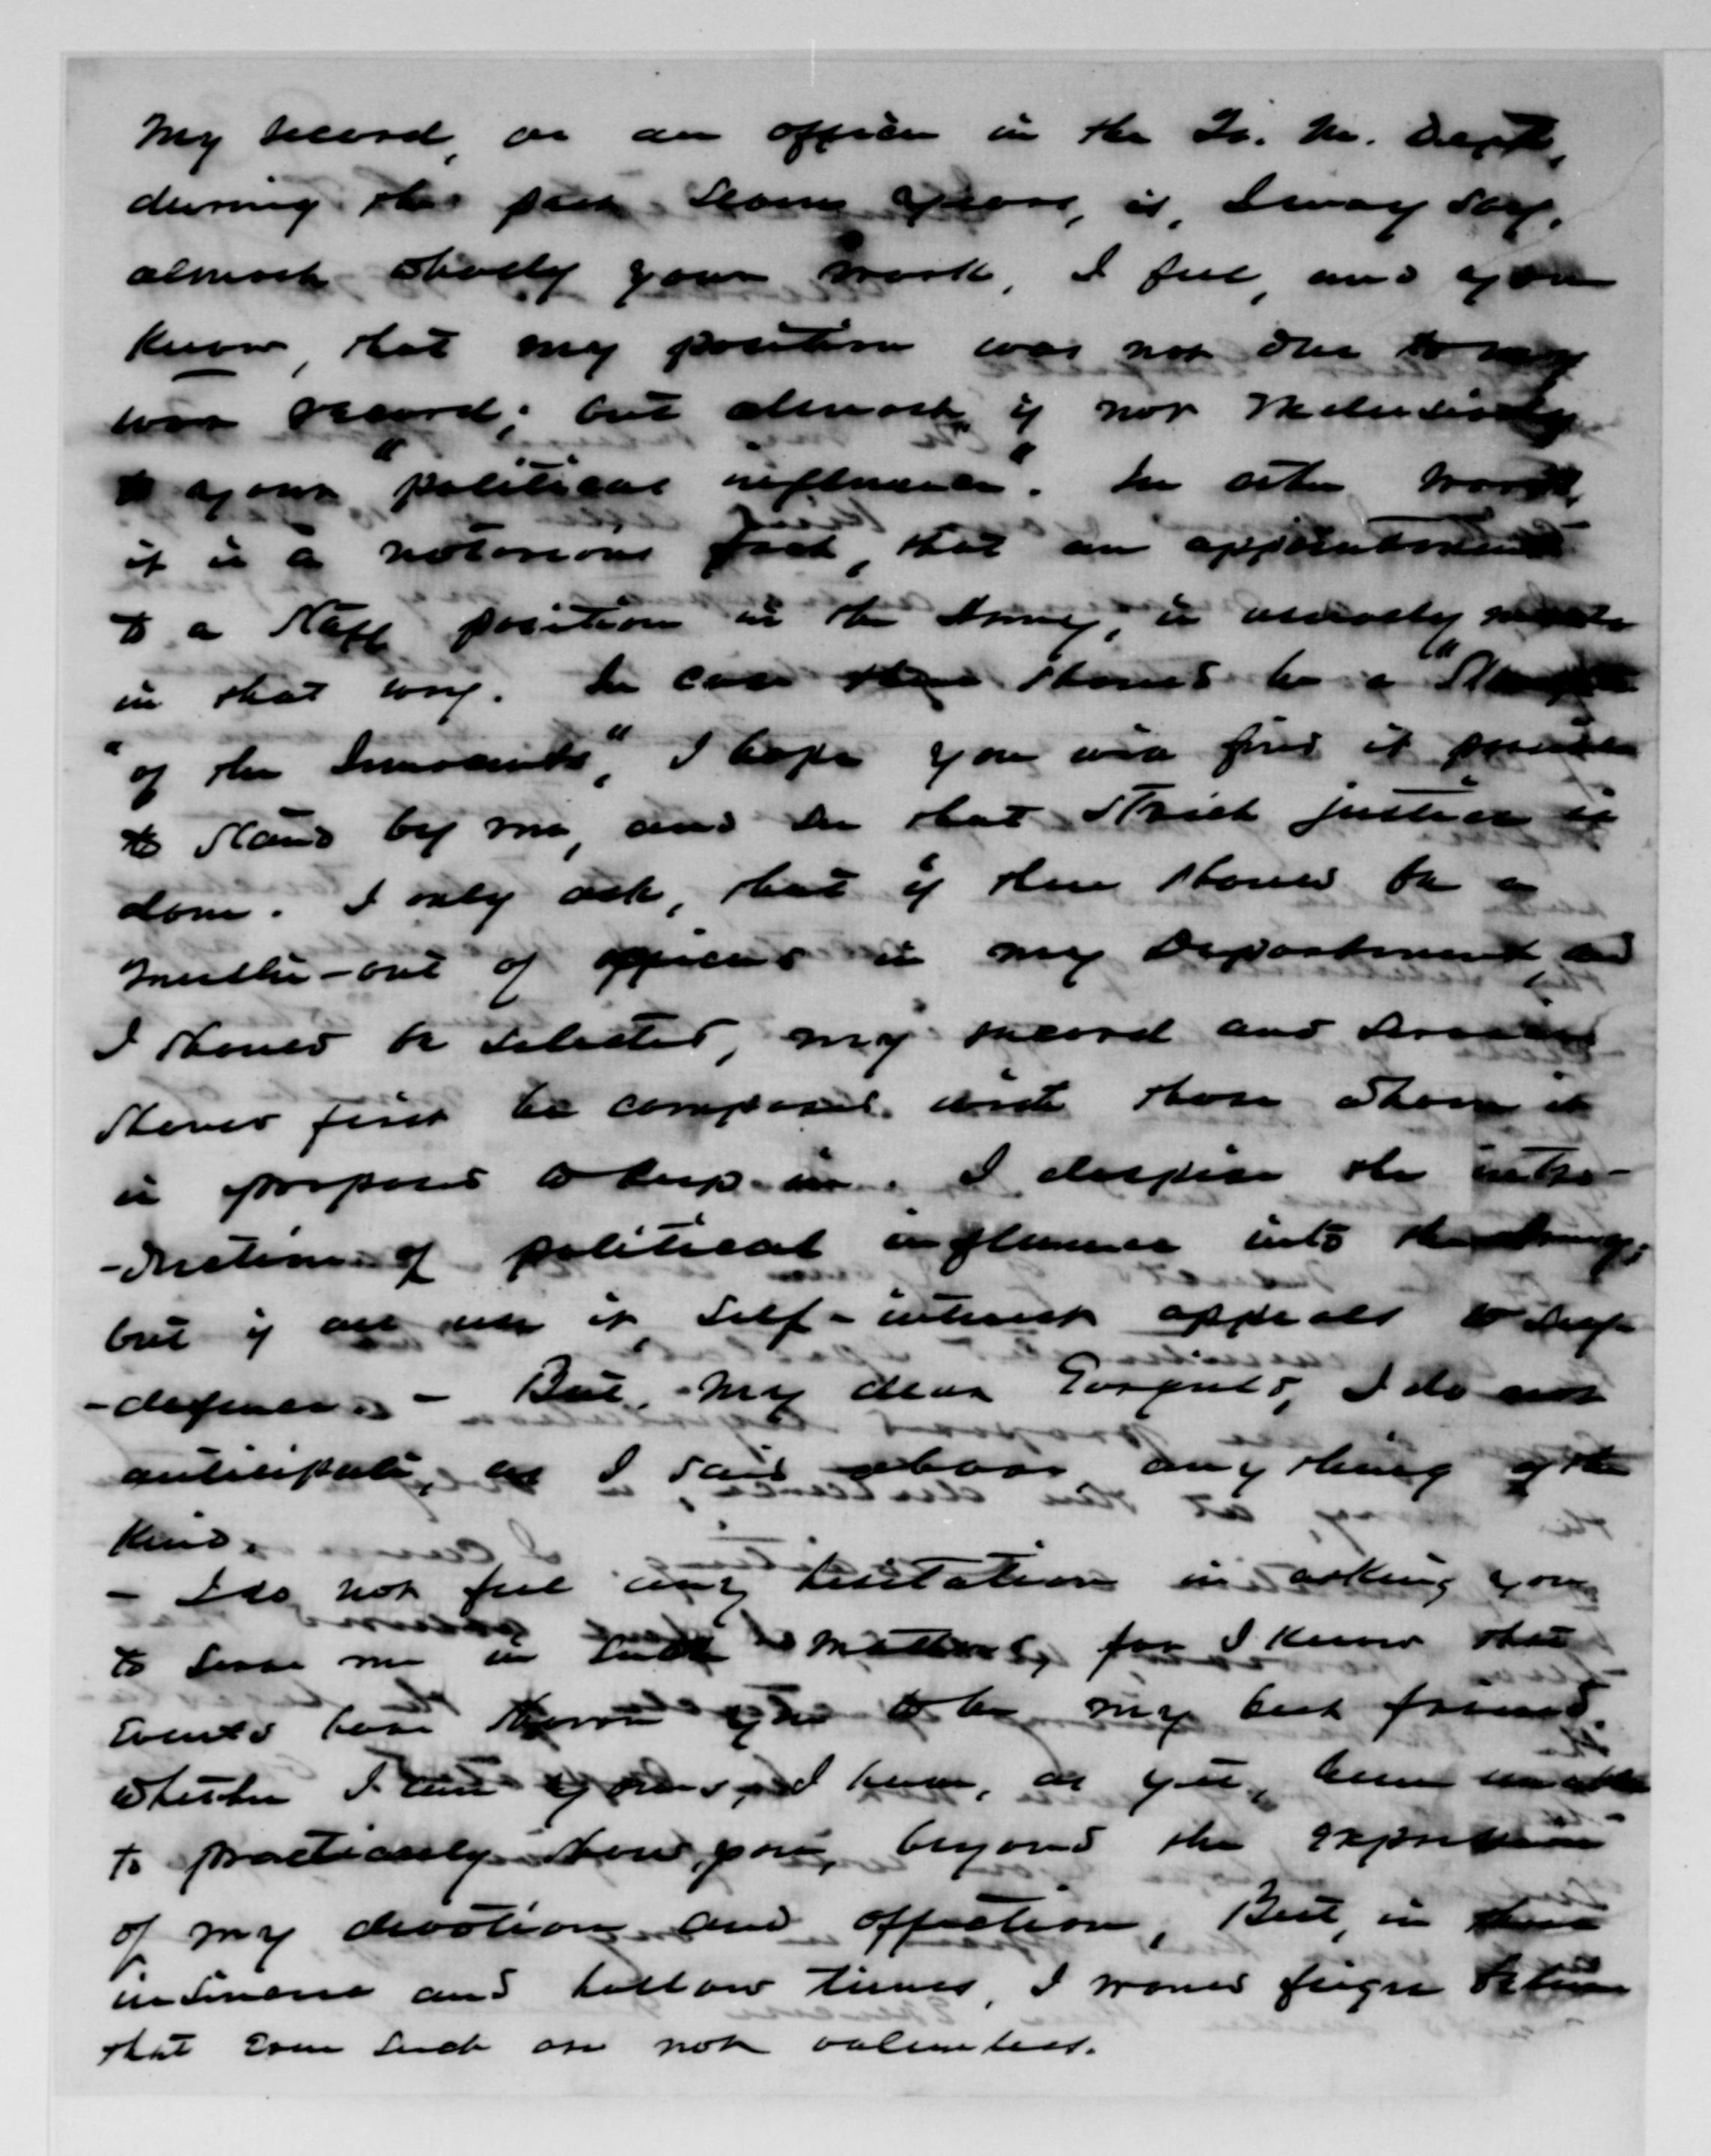 My record, as an officer in the Q. M. Dept,
during the past seven years, is, I may say,
almost wholly your work. I feel, and you
know, that my position was not due to my
war record; but almost, if not exclusively
to your "political influence". In other words,
it is a notorious fact, that an appointment
to a Staff position in the Army, is usually made
in that way. In case there should be a "Slaughter
"of the Innocents", I hope you will find it possible
to stand by me, and see that strict justice is
done. I only ask, that if there should be a
muster-out of officers in my Department, and
I should be selected, my record and services
should first be compared with those whom it
is proposed to keep in. I despise the intro-
-duction of political influence into the Army;
but if all use it, self-interest appeals to self-
-defence. - But, my dear I do not
anticipate, as I said above, anything of the
kind.
- I do not feel any hesitation in asking you
to serve me in such matters, for I know that
events have shown you to be my best friend.
Whether I am yours, I have, as yet, been unable
to practically show you, beyond the expression
of my devotion and affection, But, in these
insincere and hollow times, I would feign believe
that even such are not valueless.